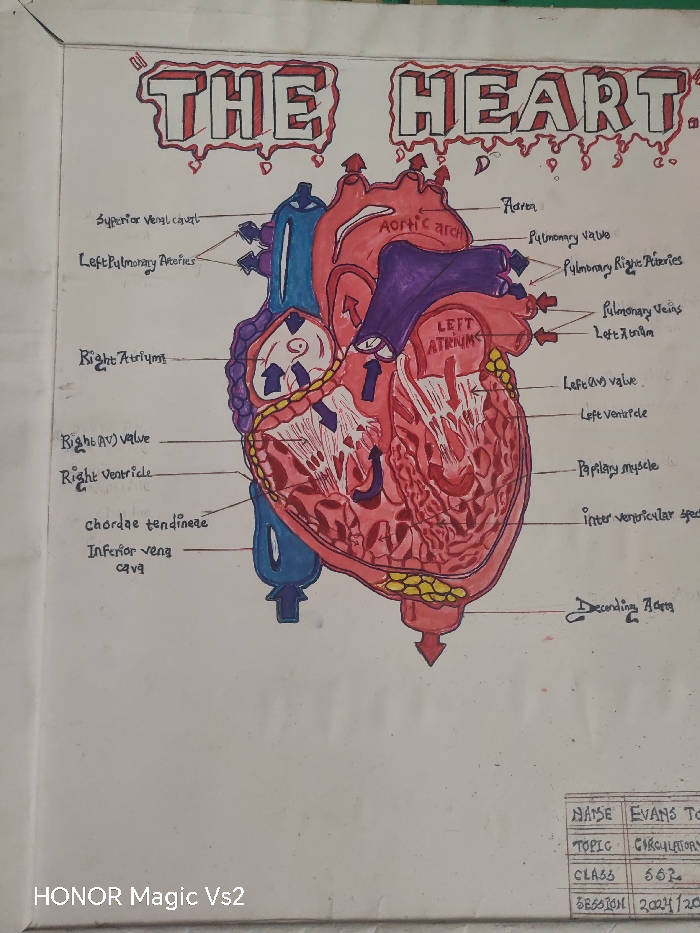 THE HEART
Superior venal caval
Left Pulmonary Arteries
Right Atrium
Right (AV) valve
Right ventricle
chordae tendineae
Inferior vena
cava
Aortic arch
LEFT
ATRIUM
Aorta
Pulmonary valve
Pulmonary Right Arteries
Pulmonary Veins
Left Atrium
Left (AV) valve
Left ventricle
Papilary muscle
inter ventricular
Decending Aorta
NAME EVANS
TOPIC CIRCULATORY
CLASS
SESSION 2024/20
HONOR Magic Vs2